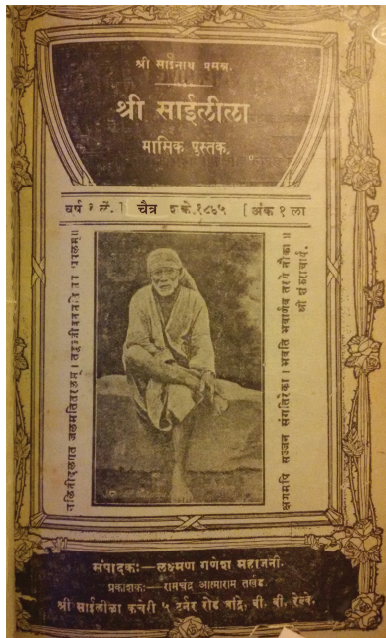 श्री साईनाथ प्रसन्न.
श्री साईलीला
मासिक पुस्तक.
वर्ष चैत्र शके. [ अंक १ ला
नलिनीदलगत जलमतितरलम् ।
क्षणमपि सज्जन संगतिरेका । भवति भवार्णव तरणे नौका ॥
श्री शंकराचार्य.
संपादकः—लक्ष्मण गणेश महाजनी.
प्रकाशकः—रामचंद्र आत्माराम तर्खड.
श्री साईलीळा कचेरी ५ टर्नर रोड बांद्रे, बी. बी. रेल्वे.